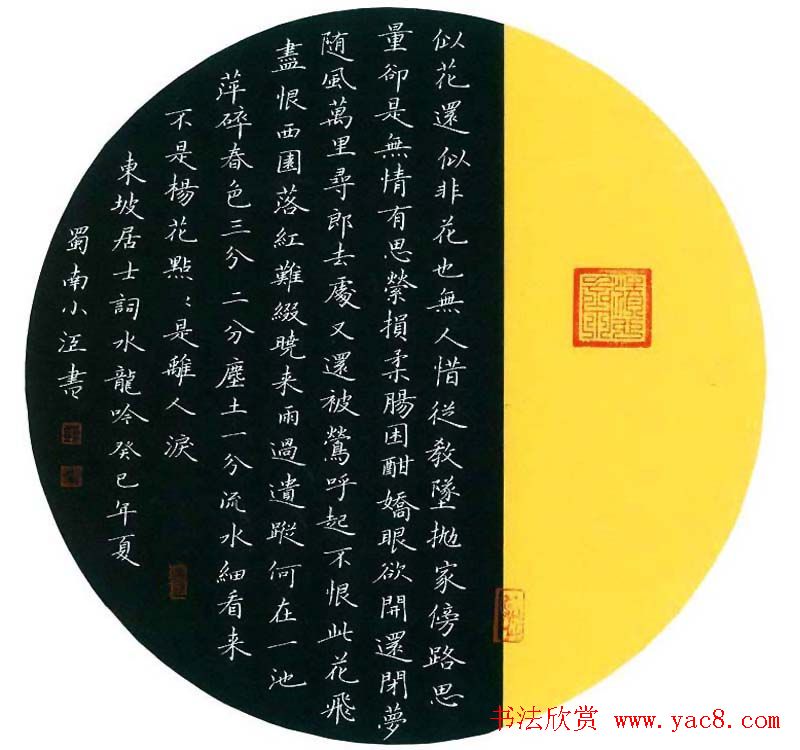 似花還似非花也無人惜從教墜抛家傍路思
量卻是無情有思縈損柔腸困酣嬌眼欲開還閉夢
随風萬里尋郎去處又還被鶯呼起不恨此花飛
盡恨西園落紅難綴曉来雨過遺蹤何在一池
萍碎春色三分二分塵土一分流水細看来
不是楊花點〻是離人淚
東坡居士詞水龍吟癸巳年夏
蜀南小汪書
书法欣赏 www.yac8.com